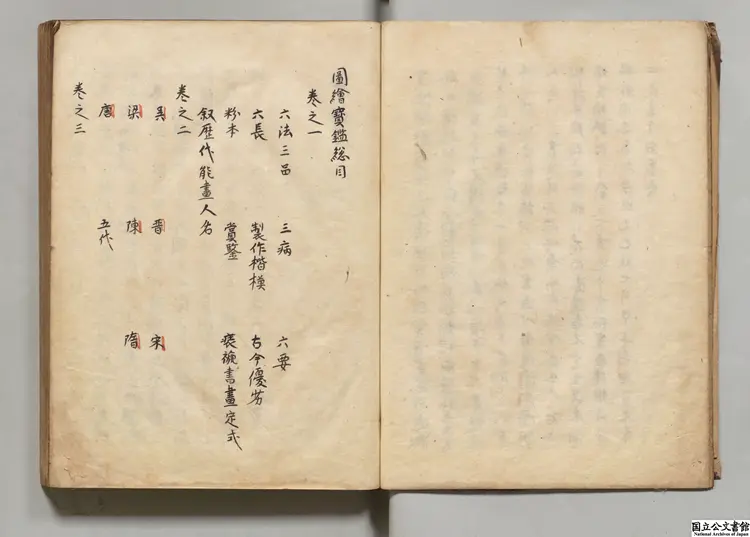 圖繪寶鑑総目
卷之一
六法三品　三病　六要
六長　製作楷模　古今優劣
粉本　賞鑒　裱褫書畫定式
叙歴代能畫人名
卷之二
吳　晋　宋
梁　陳　隋
唐　五代
卷之三
国立公文書館
National Archives of Japan